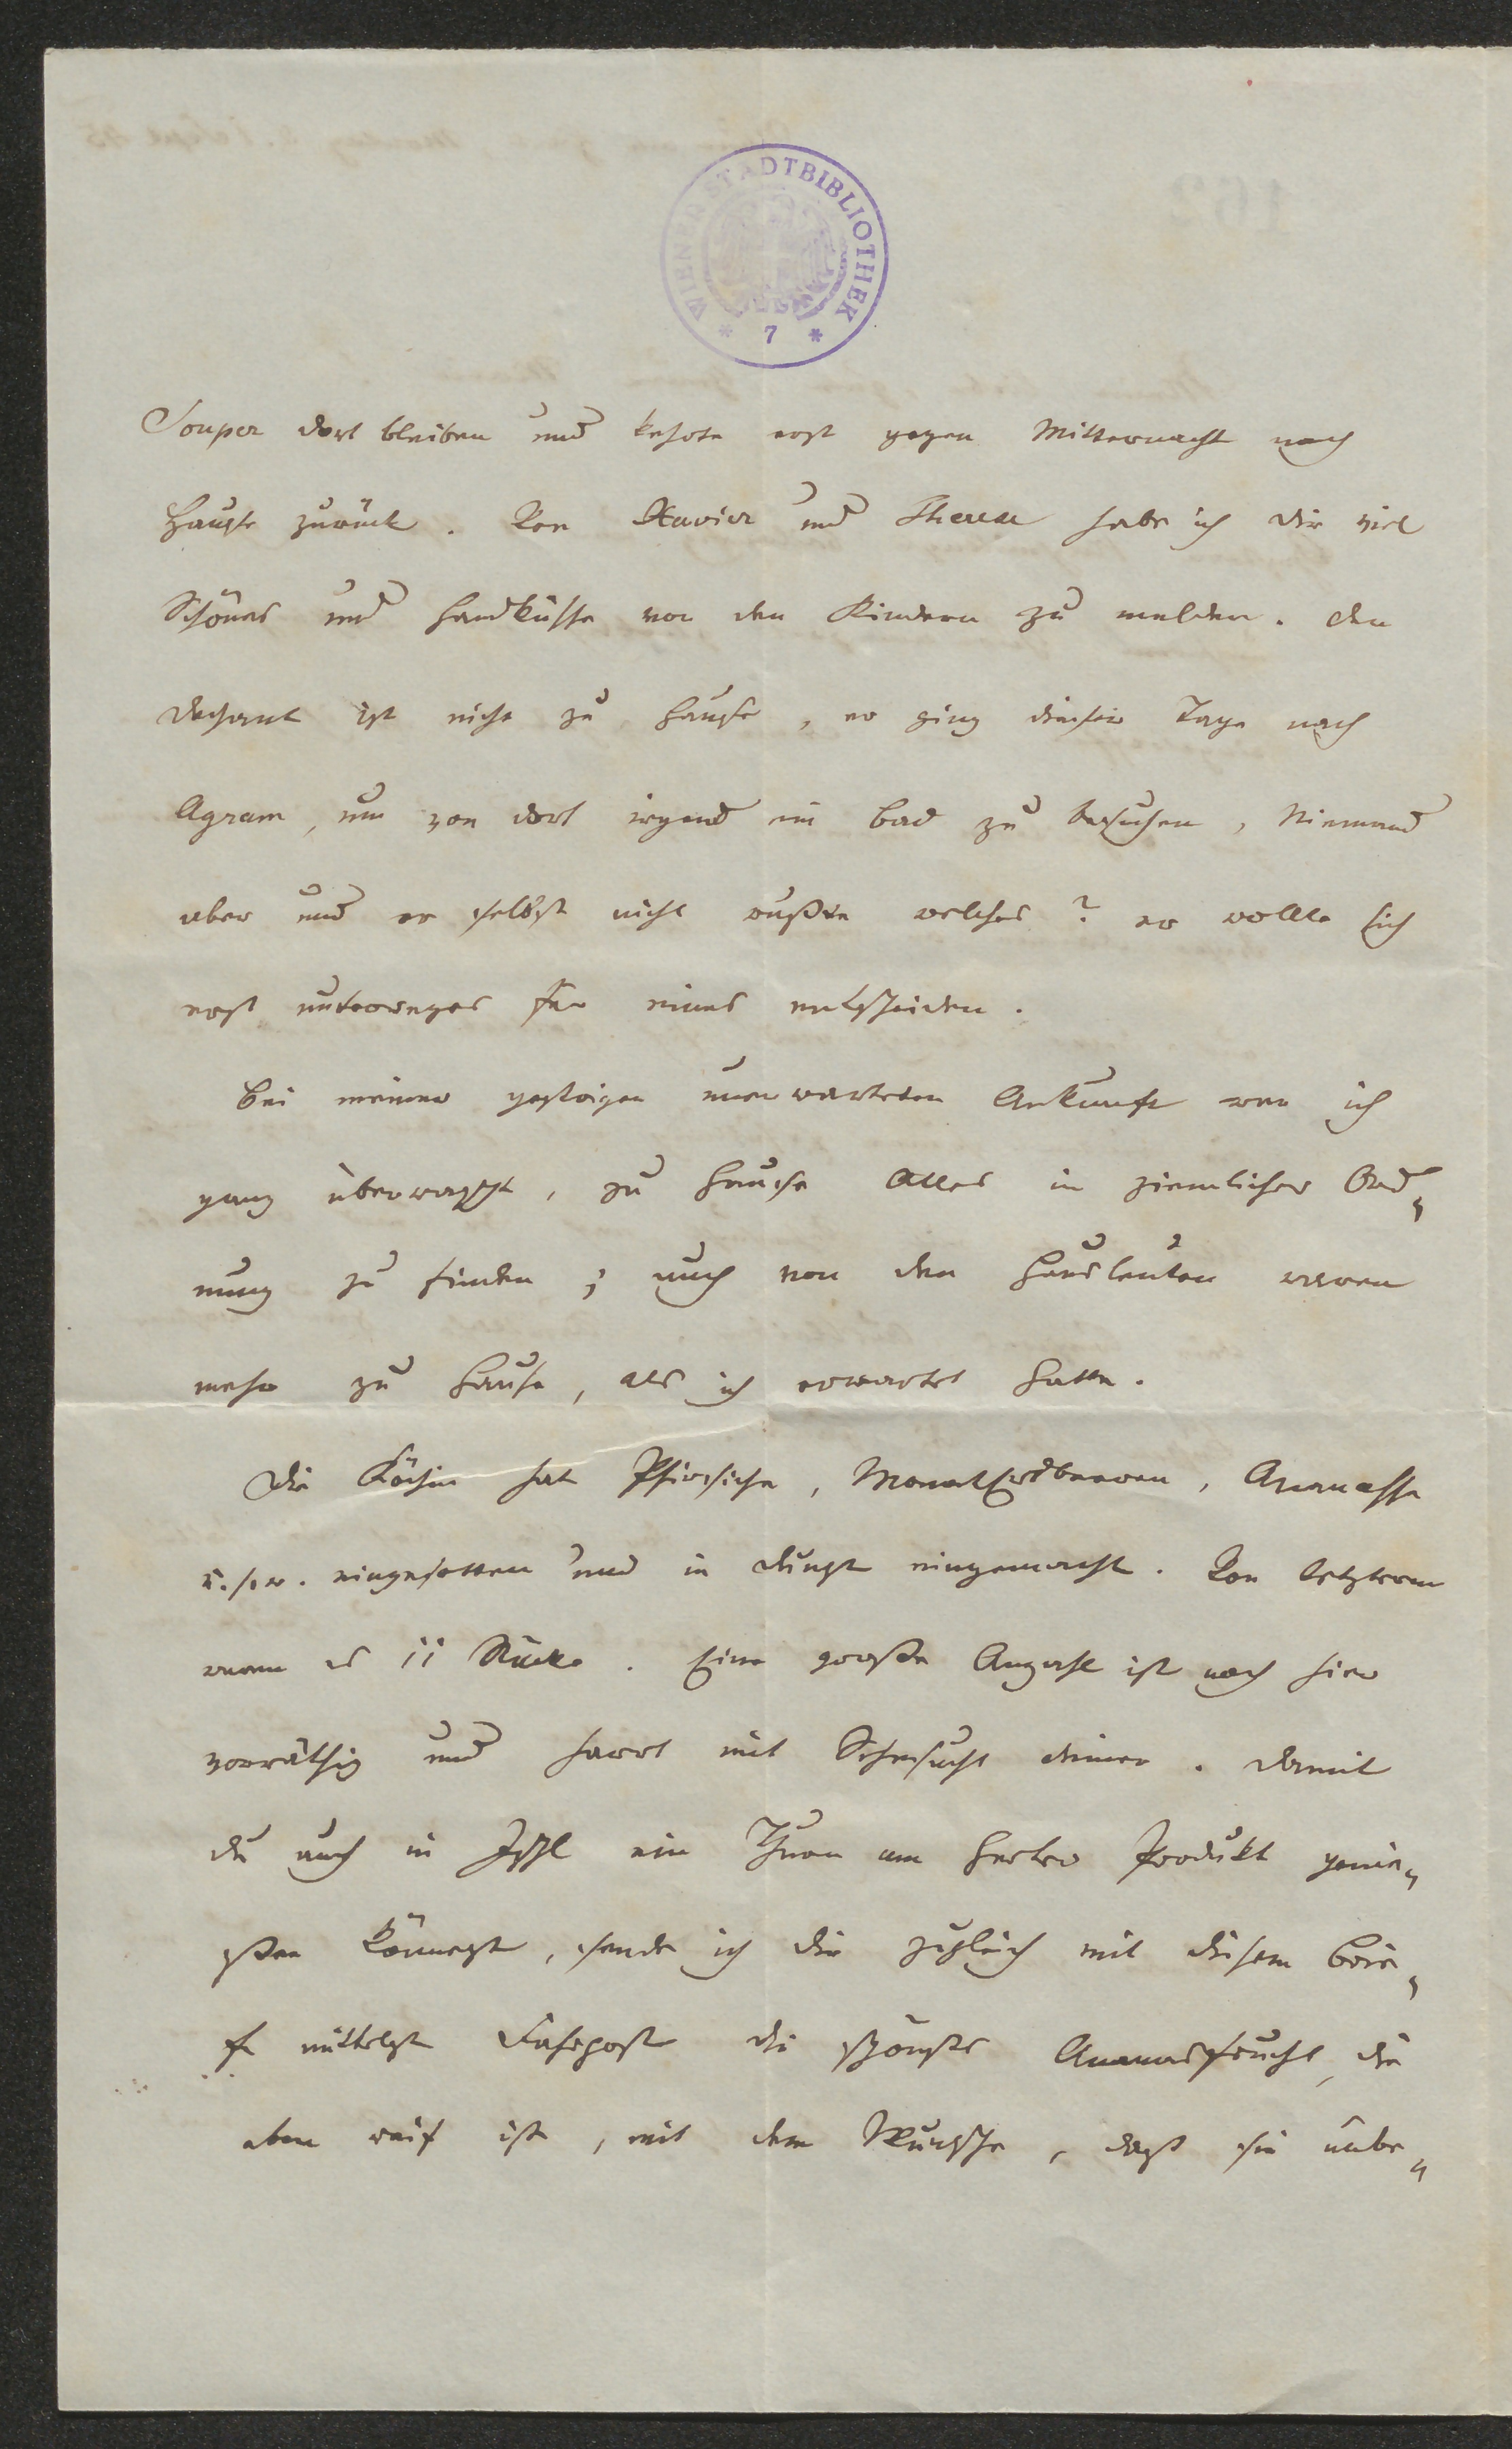 WIENER STADTBIBLIOTHEK
* 7 *
Souper dort bleiben und kehrte erst gegen Mitternacht nach
Hause zurück. Von Xavier und Therese habe ich dir viel
Schönes und Handküsse von den Kindern zu melden. Der
Dechant ist nicht zu Hause, er ging dieser Tage nach
Agram, um von dort irgend ein Bad zu besuchen, Niemand
aber und er selbst nicht wußte welches? er wollte sich
erst unterweges für eines entscheiden.
Bei meiner gestrigen unerwarteten Ankunft war ich
ganz überrascht, zu Hause Alles in ziemlicher Ord„
nung zu finden; auch von den Hausleuten waren
mehr zu Hause, als ich erwartet hatte.
Die Köchin hat Pfirsiche, Monatserdbeeren, Ananasse
u.s.w. eingesotten und in Dunst eingemacht. Von letzteren
waren es 11 Stücke. Eine große Anzahl ist noch hier
vorräthig und harrt mit Sehnsucht deiner. Damit
du auch in Ischl ein Thurn am Harter Produkt genie„
ßen könnest, sende ich dir zugleich mit diesem Brie„
fe mittelst Fahrpost die schönste Ananasfrucht, die
eben reif ist, mit dem Wunsche, daß sie unbe„